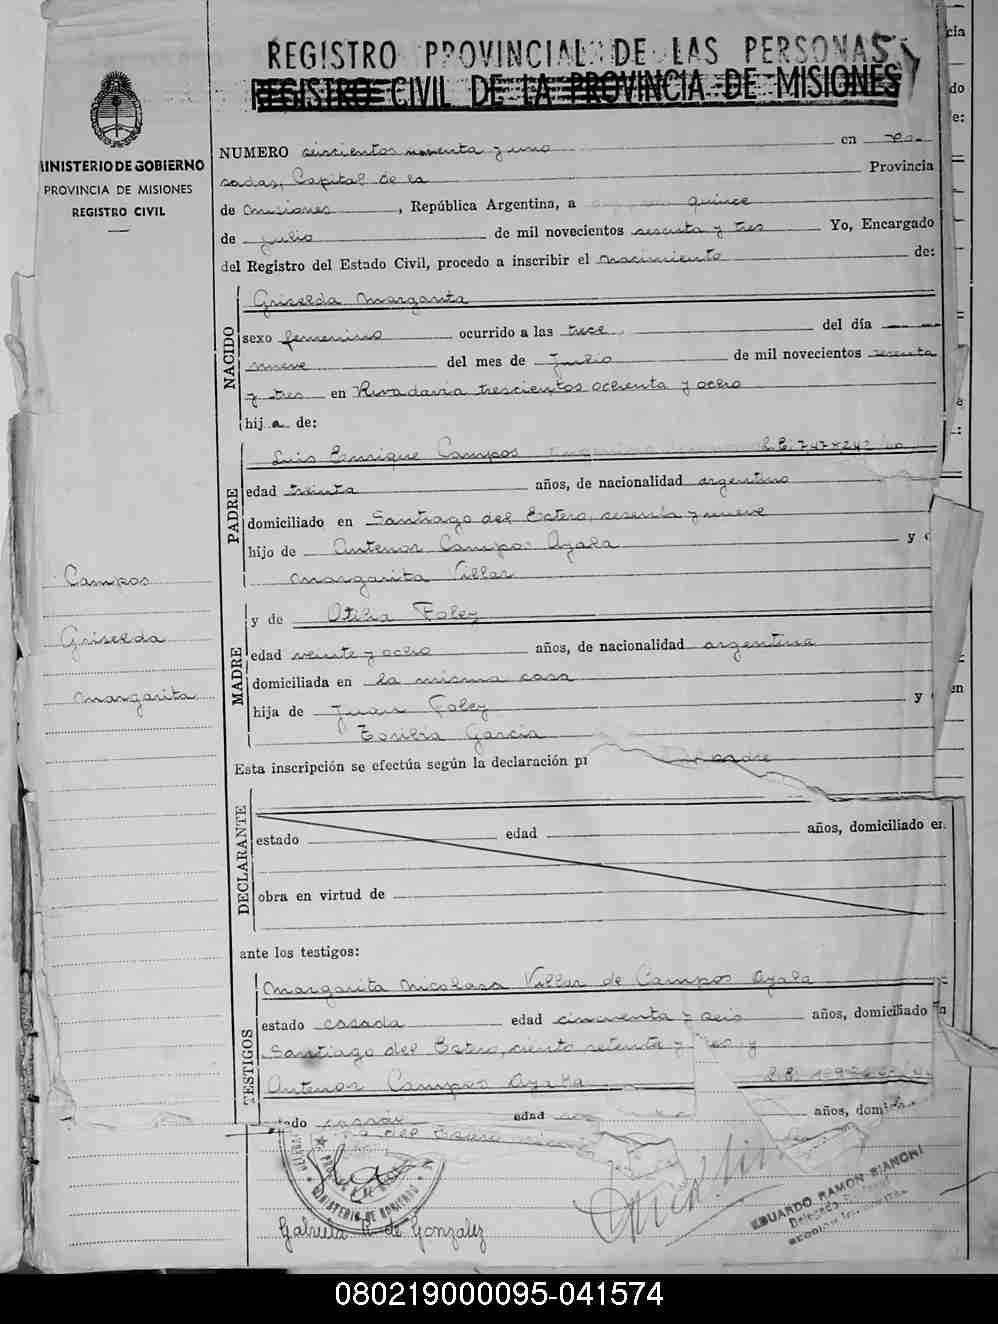 REGISTRO PROVINCIAL DE LAS PERSONAS
REGISTRO CIVIL DE LA PROVINCIA DE MISIONES
MINISTERIO DE GOBIERNO
PROVINCIA DE MISIONES
REGISTRO CIVIL
NUMERO seiscientos noventa y uno en Po-
sadas, Capital de la Provincia
de Misiones, República Argentina, a quince
de julio de mil novecientos sesenta y tres Yo, Encargado
del Registro del Estado Civil, procedo a inscribir el nacimiento de:
NACIDO
Griselda Margarita
sexo femenino ocurrido a las trece del día
nueve del mes de Julio de mil novecientos sesenta
y tres en Rivadavia trescientos ochenta y ocho
hija de:
PADRE
Luis Enrique Campos
edad treinta años, de nacionalidad argentino
domiciliado en Santiago del Estero, sesenta y nueve
hijo de Antenor Campos Ayala y
Margarita Villar
MADRE
y de Otilia Foley
edad veinte y ocho años, de nacionalidad argentina
domiciliada en la misma casa
hija de Juan Foley y
Toribia Garcia
Esta inscripción se efectúa según la declaración padre
DECLARANTE
estado edad años, domiciliado en
obra en virtud de
ante los testigos:
TESTIGOS
Margarita Nicolasa Villar de Campos Ayala
estado casada edad cincuenta y seis años, domiciliado
Santiago del Estero, ciento setenta y tres y
Antenor Campos Ayala
edad años,
del Estero
Campos
Griselda
Margarita
MINISTERIO DE GOBIERNO
Gabriela R de Gonzalez
EDUARDO RAMON BIANCHI
080219000095-041574